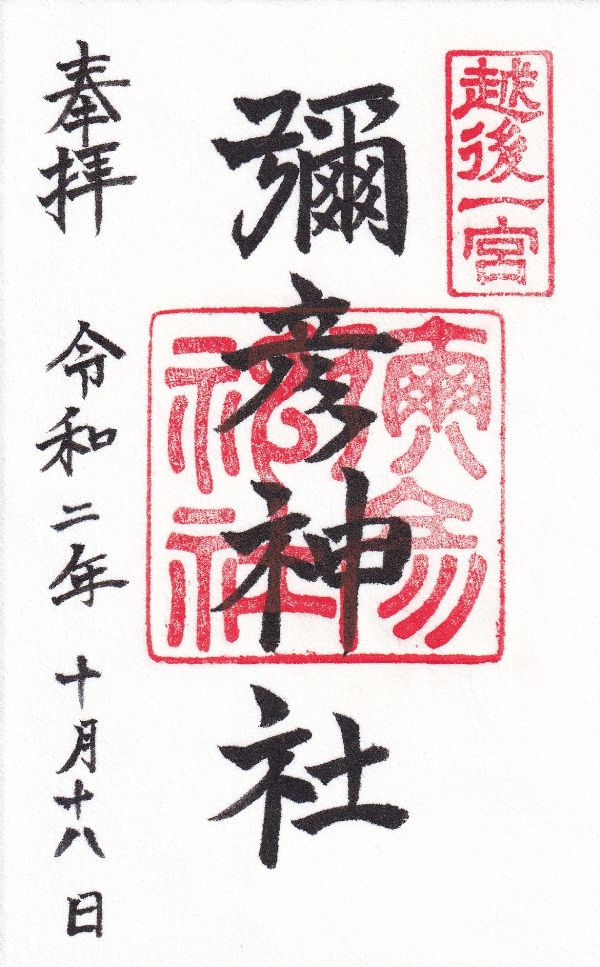 越後一宮
彌彦神社
奉拝
令和二年 十月十八日